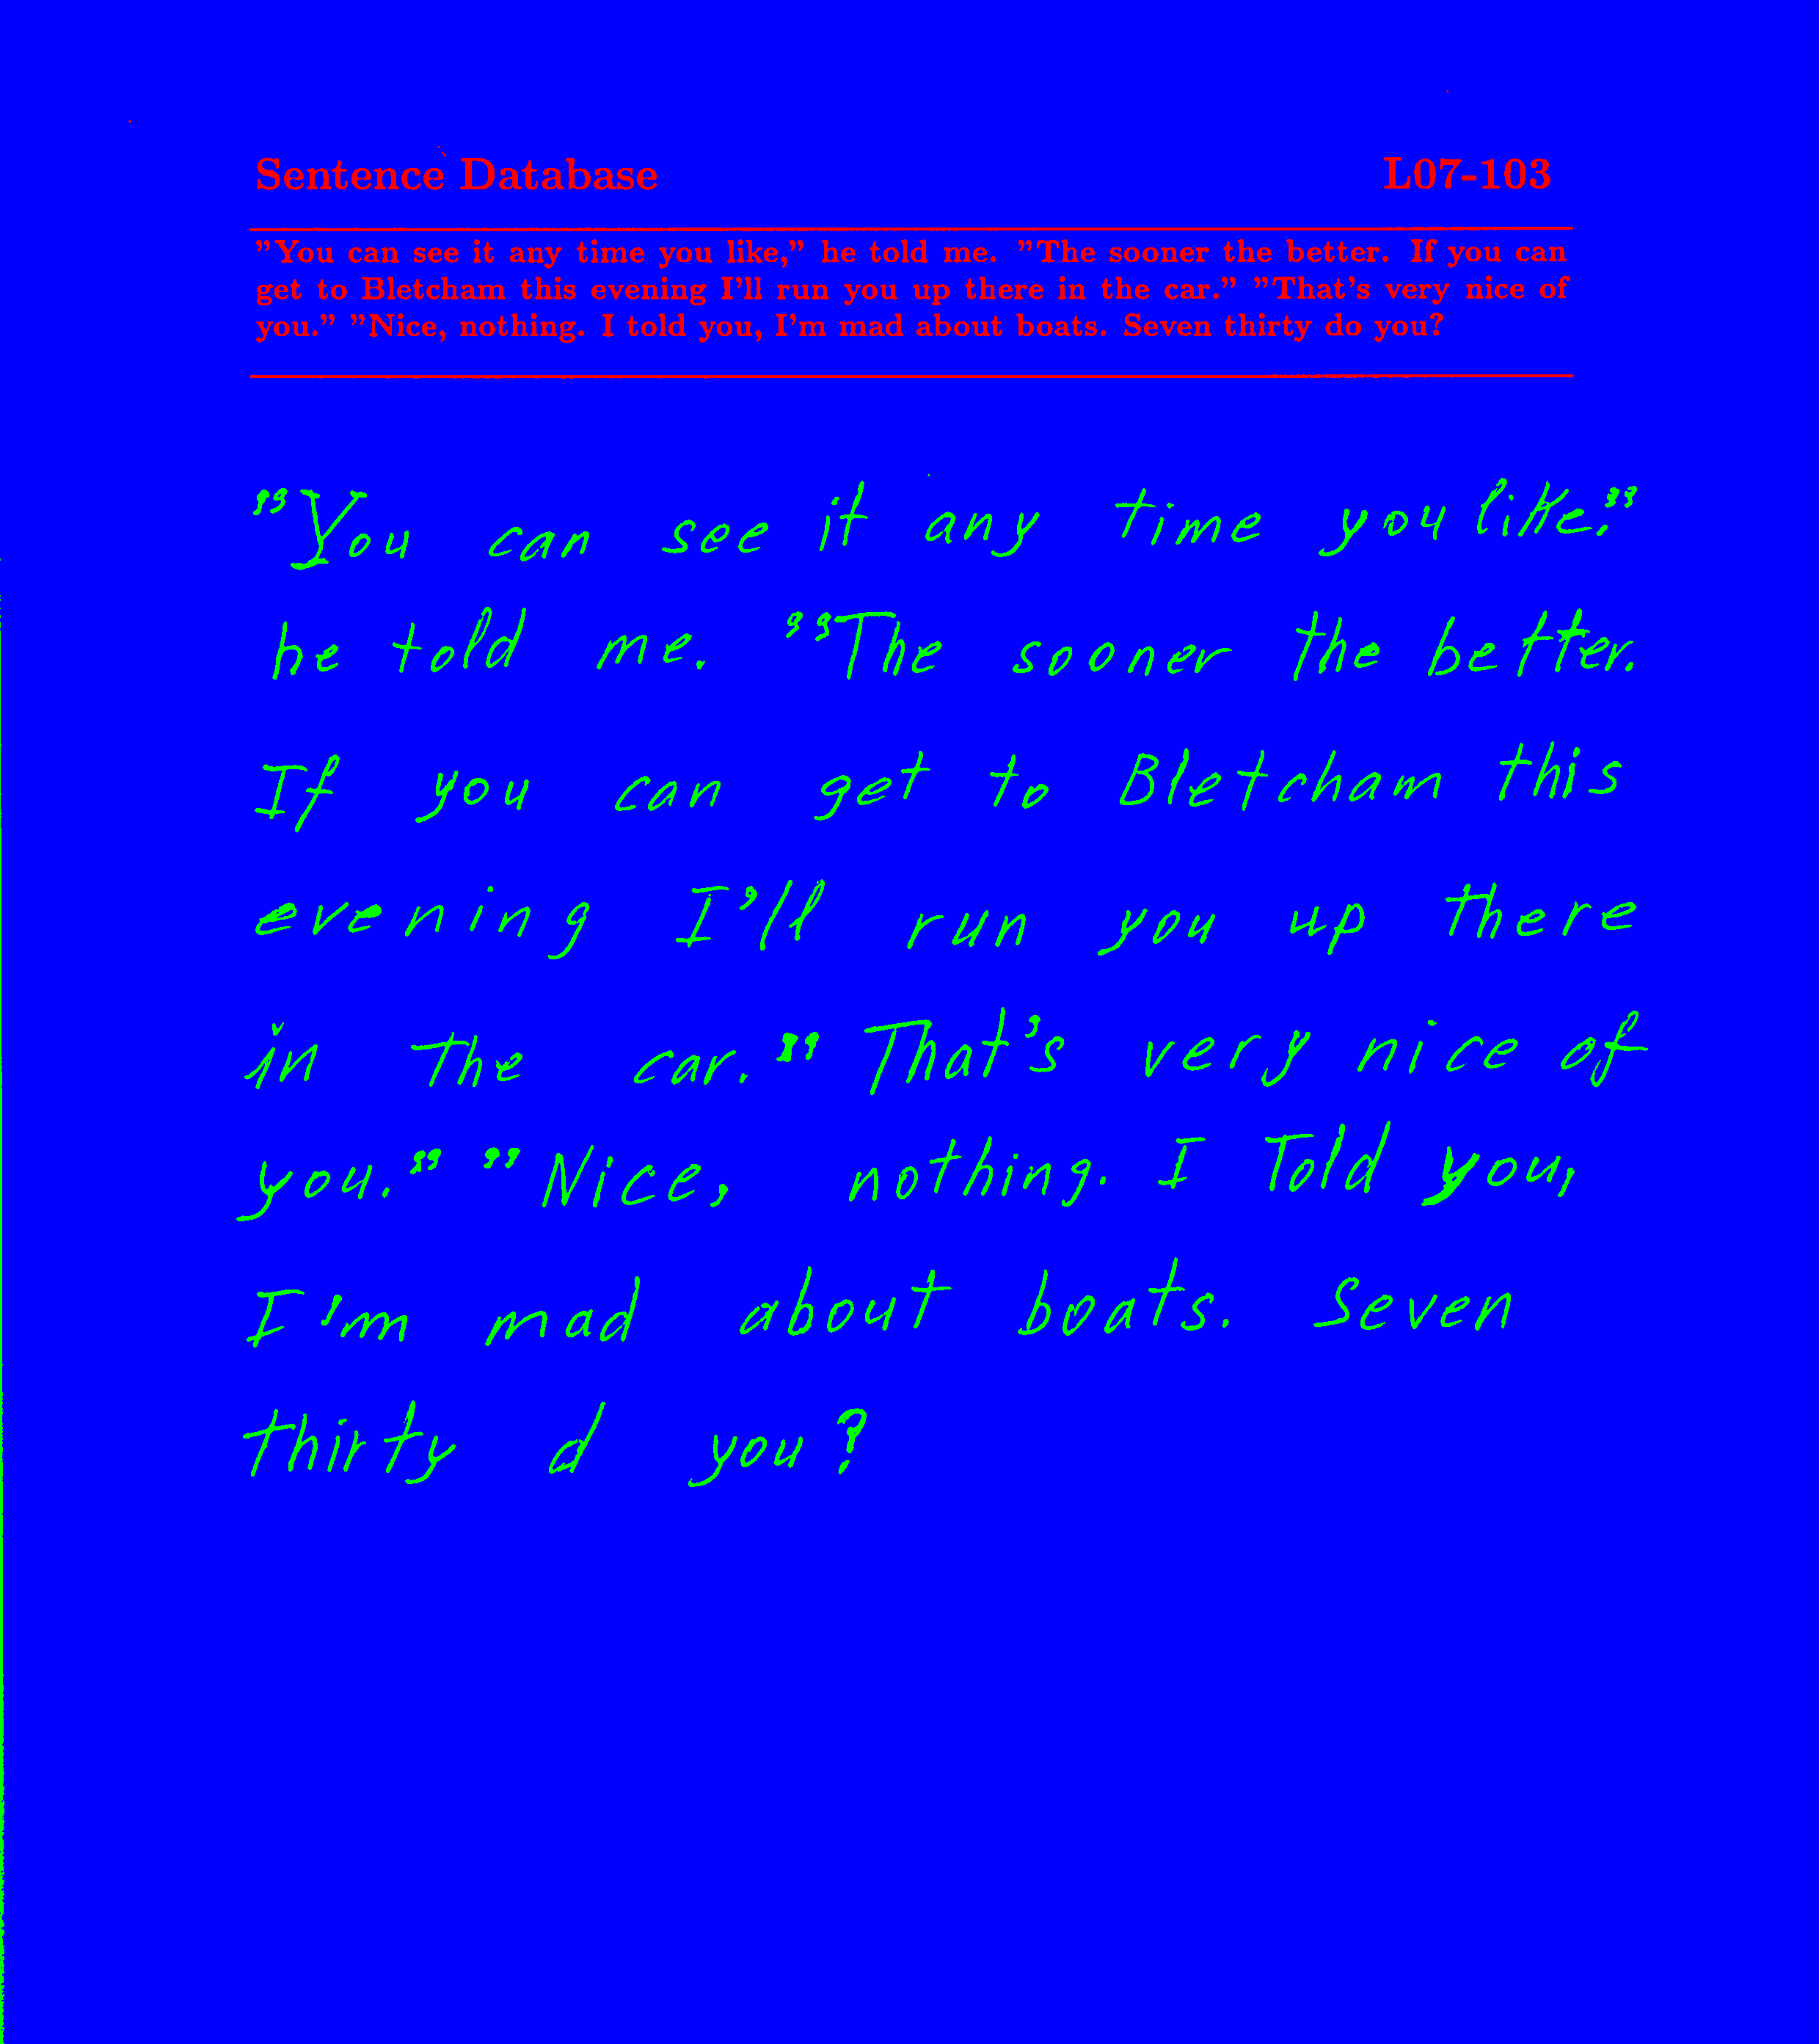 Sentence Database L07-103
"You can see it any time you like," he told me. "The sooner the better. If you can
get to Bletcham this evening I'll run you up there in the car." "That's very nice of
you." "Nice, nothing. I told you, I'm mad about boats. Seven thirty do you?
"You can see it any time you like."
he told me. "The sooner the better.
If you can get to Bletcham this
evening I'll run you up there
in the car." That's very nice of
you." "Nice, nothing. I Told you,
I'm mad about boats. Seven
thirty d you?